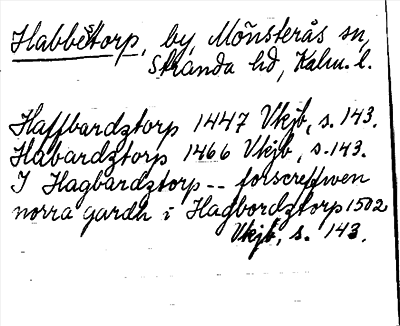 Habbestorp, by, Mönsterås sn,
Stranda hd, Kalm. l.
Haffbardztorp 1447 Vkjb, s. 143.
Habardztorp 1466 Vkjb, s. 143.
I Hagbardztorp -- forscreffwen
norra gardh i Hagbordztorp 1502
Vkjb, s. 143.